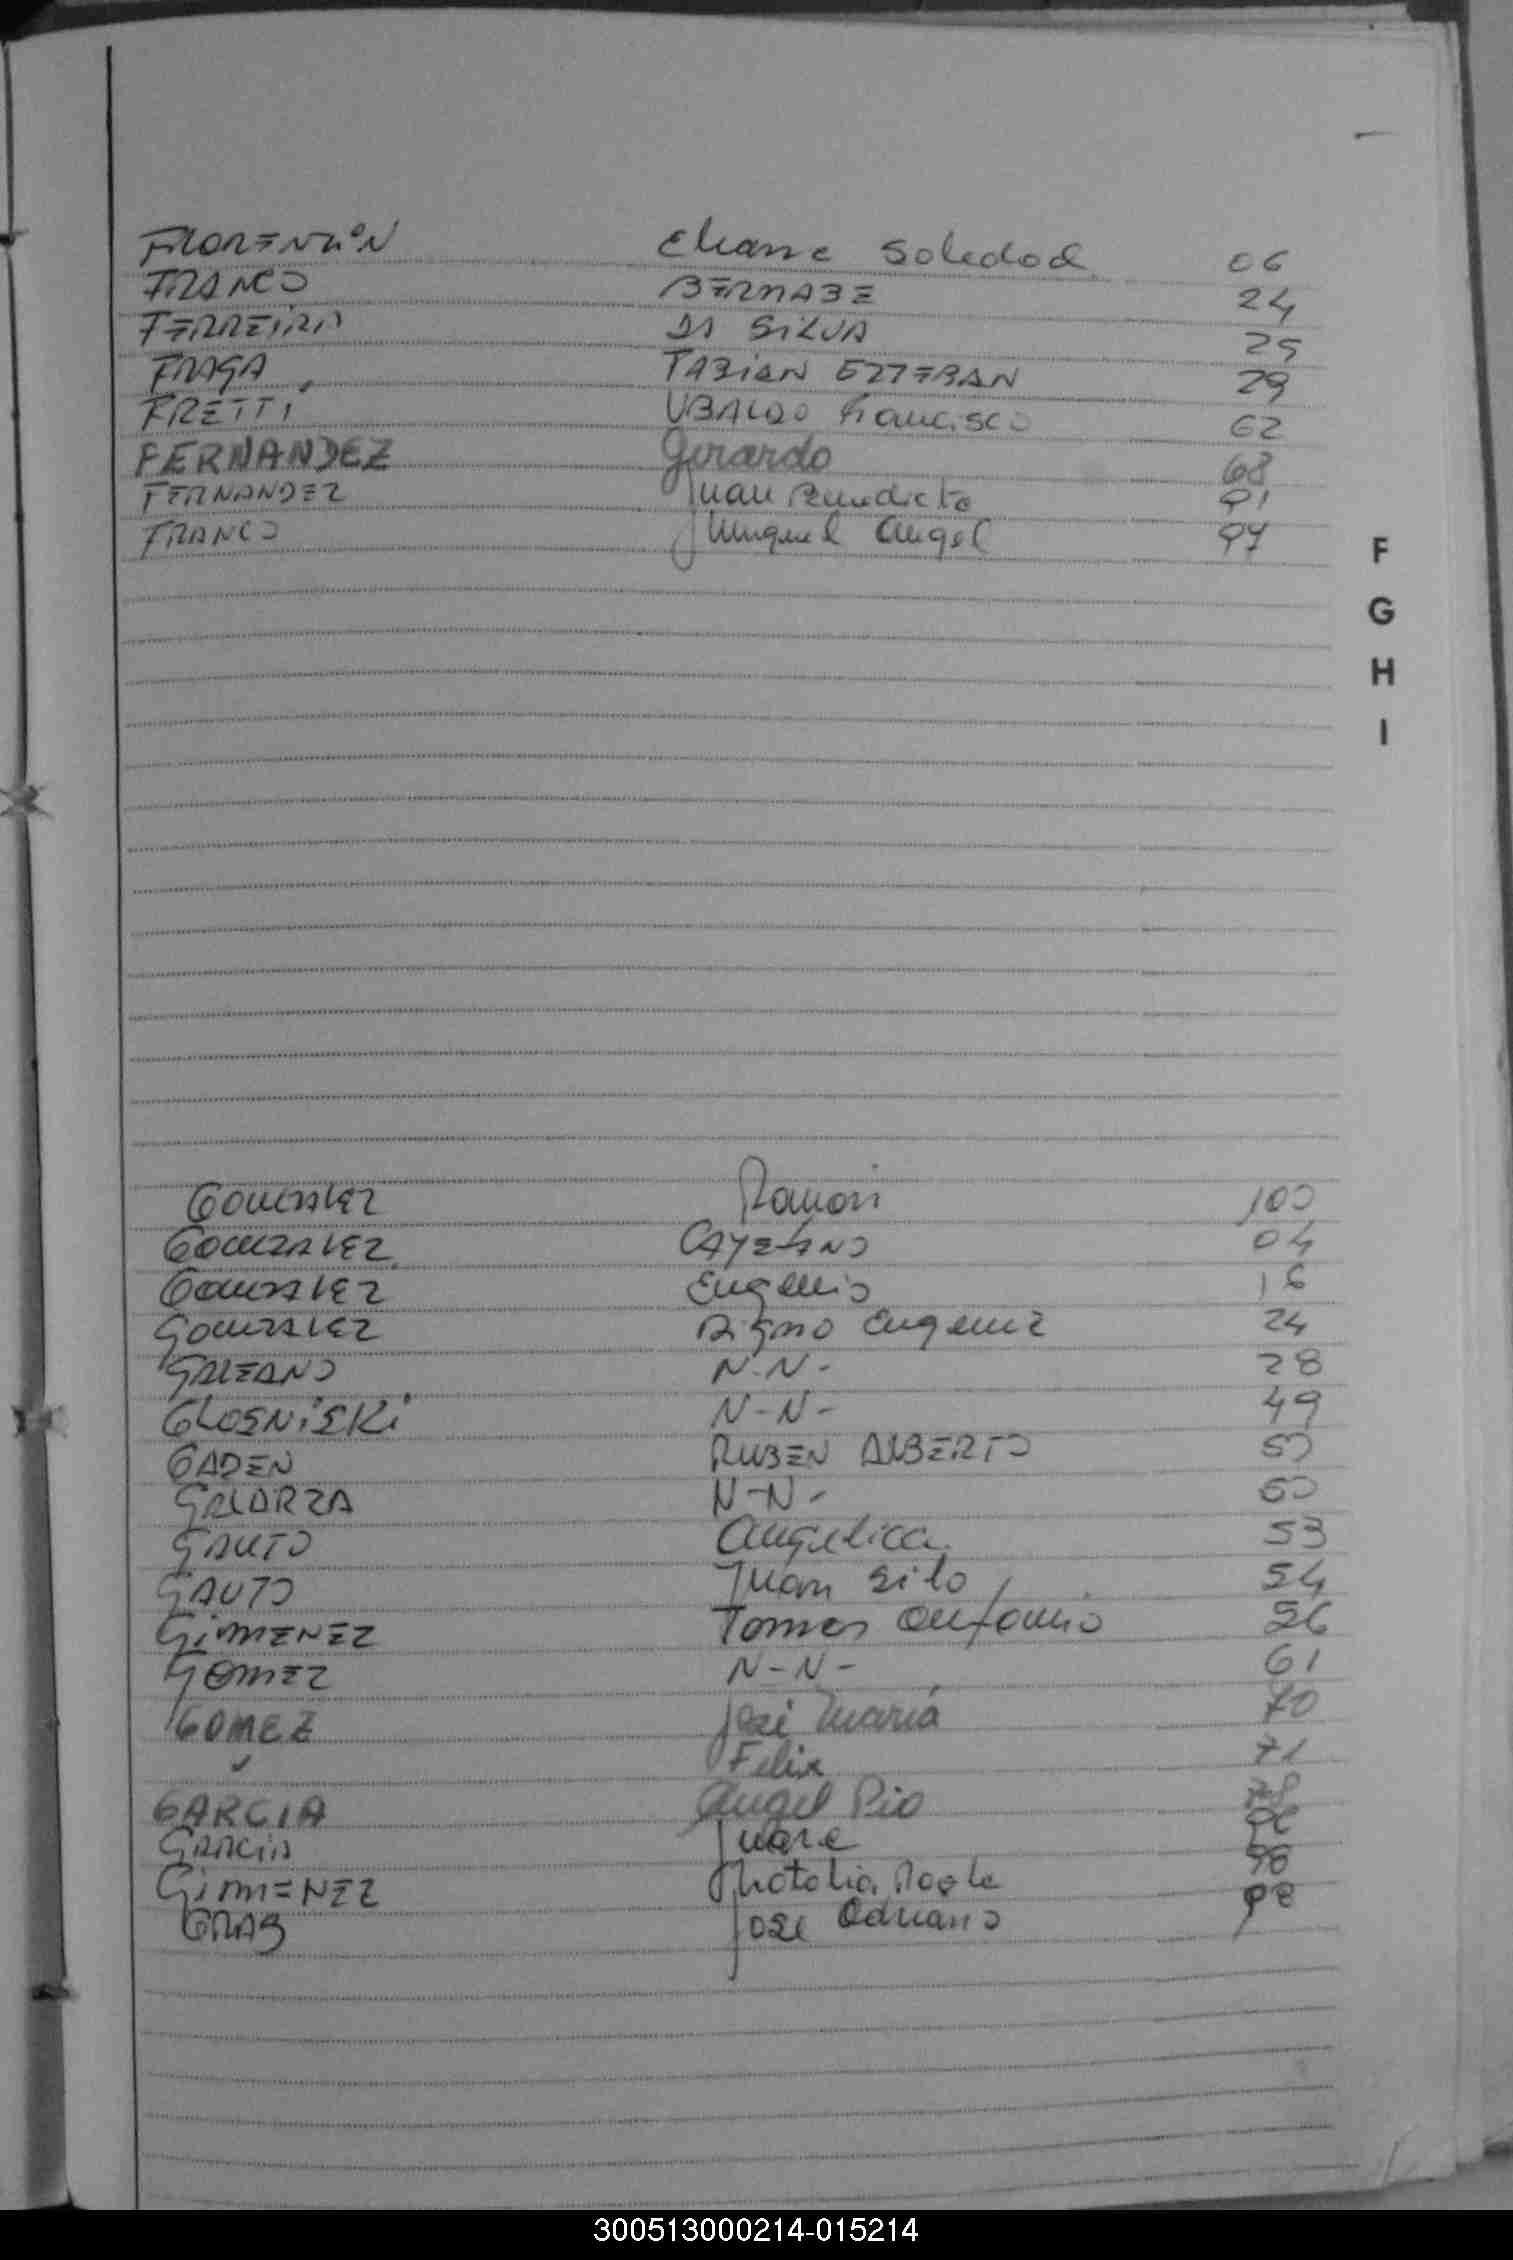 FLORENTIN Eliana Soledad 06
FRANCO BERNABE 24
FERREIRA DA SILVA 25
FRAGA FABIAN ESTEBAN 29
FRETTI UBALDO Francisco 62
FERNANDEZ Gerardo 68
FERNANDEZ Juan Benedicto 91
FRANCO Miguel Angel 97
F
G
H
I
GONZALEZ Ramon 100
GONZALEZ CAYETANO 04
GONZALEZ Eugenio 16
GONZALEZ Digno Eugenio 24
GALEANO N-N- 28
GLOSNISKI N-N- 49
GADEN RUBEN ALBERTO 50
GALARZA N-N- 50
GAUTO Angelica 53
GAUTO Juan 54
GIMENEZ Tomas Antonio 56
GOMEZ N-N- 61
GOMEZ José María 70
" Felix 71
GARCIA Angel Pio 78
GARCIA 96
GIMENEZ 98
GRAB Jose Adriano 98
300513000214-015214